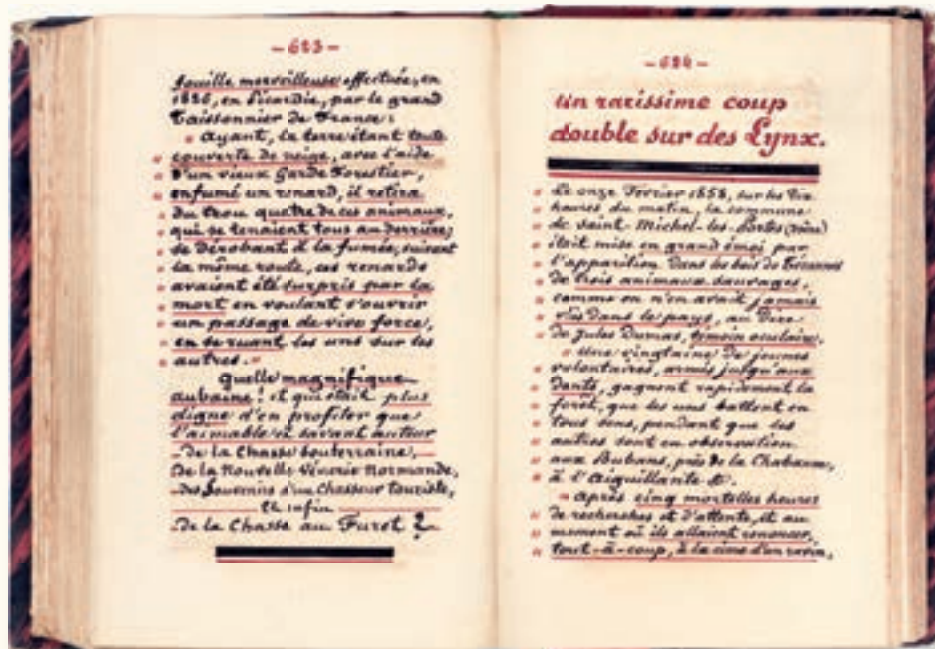 -623-
fouille merveilleuse effectuée, en
1826, en Picardie, par le grand
Taissonnier de France:
" Ayant, la terre étant toute
" couverte de neige, avec l'aide
" d'un vieux Garde Forestier,
" enfumé un renard, il retira
" du trou quatre de ces animaux,
" qui se tenaient tous au derrière;
" se dérobant à la fumée, suivant
" la même route, ces renards
" avaient été surpris par la
" mort en voulant s'ouvrir
" un passage de vive force,
" en se ruant les uns sur les
" autres. "
Quelle magnifique
aubaine! et qui était plus
digne d'en profiter que
l'aimable et savant auteur
de la Chasse Souterraine,
de la Nouvelle Vénerie Normande,
des Souvenirs d'un Chasseur touriste,
et enfin
de la Chasse au Furet ?
-624-
Un rarissime coup
double sur des Lynx.
" Le onze Février 1858, sur les dix
" heures du matin, la commune
" de Saint-Michel-les-Portes (Isère)
" était mise en grand émoi par
" l'apparition dans les bois de
" de trois animaux sauvages,
" comme on n'en avait jamais
" vus dans le pays, au dire
" de Jules Dumas, témoin oculaire.
" Une vingtaine de jeunes
" volontaires, armés jusqu'aux
" dents, gagnent rapidement la
" forêt, que les uns battent en
" tous sens, pendant que les
" autres sont en observation
" aux Bubans, près de la Chabanne,
" à l'Aiguillante &.
" Après cinq mortelles heures
" de recherches et d'attente, et au
" moment où ils allaient renoncer,
" tout-à-coup, à la cime d'un ravin,